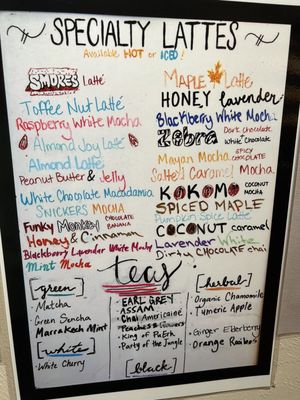 SPECIALTY LATTES
Available HOT or ICED!
SMORES Latte
Toffee Nut Latte
Raspberry White Mocha
Almond Joy Latte
Almond Latte
Peanut Butter & Jelly
White Chocolate Macadamia
SNICKERS MOCHA
Funky Monkey CHOCOLATE BANANA
Honey & Cinnamon
Blackberry Lavender White Mocha
Mint Mocha
MAPLE Latte
HONEY lavender
Blackberry White Mocha
Zebra Dark Chocolate + White Chocolate
Mayan Mocha SPICY CHOCOLATE
Salted Caramel Mocha
KOKOMO COCONUT MOCHA
SPICED MAPLE
Pumpkin Spice Latte
COCONUT caramel
Lavender White
Dirty CHOCOLATE chai
Teas
[green]
· Matcha
· Green Sencha
· Marrakech Mint
[white]
· White Cherry
· EARL GREY
· ASSAM
· Chai Americaine
· Peaches & Flowers
· King of Pu Erh
· Party of the Jungle
[black]
[herbal]
· Organic Chamomile
· Tumeric Apple
· Ginger Elderberry
· Orange Rooibos